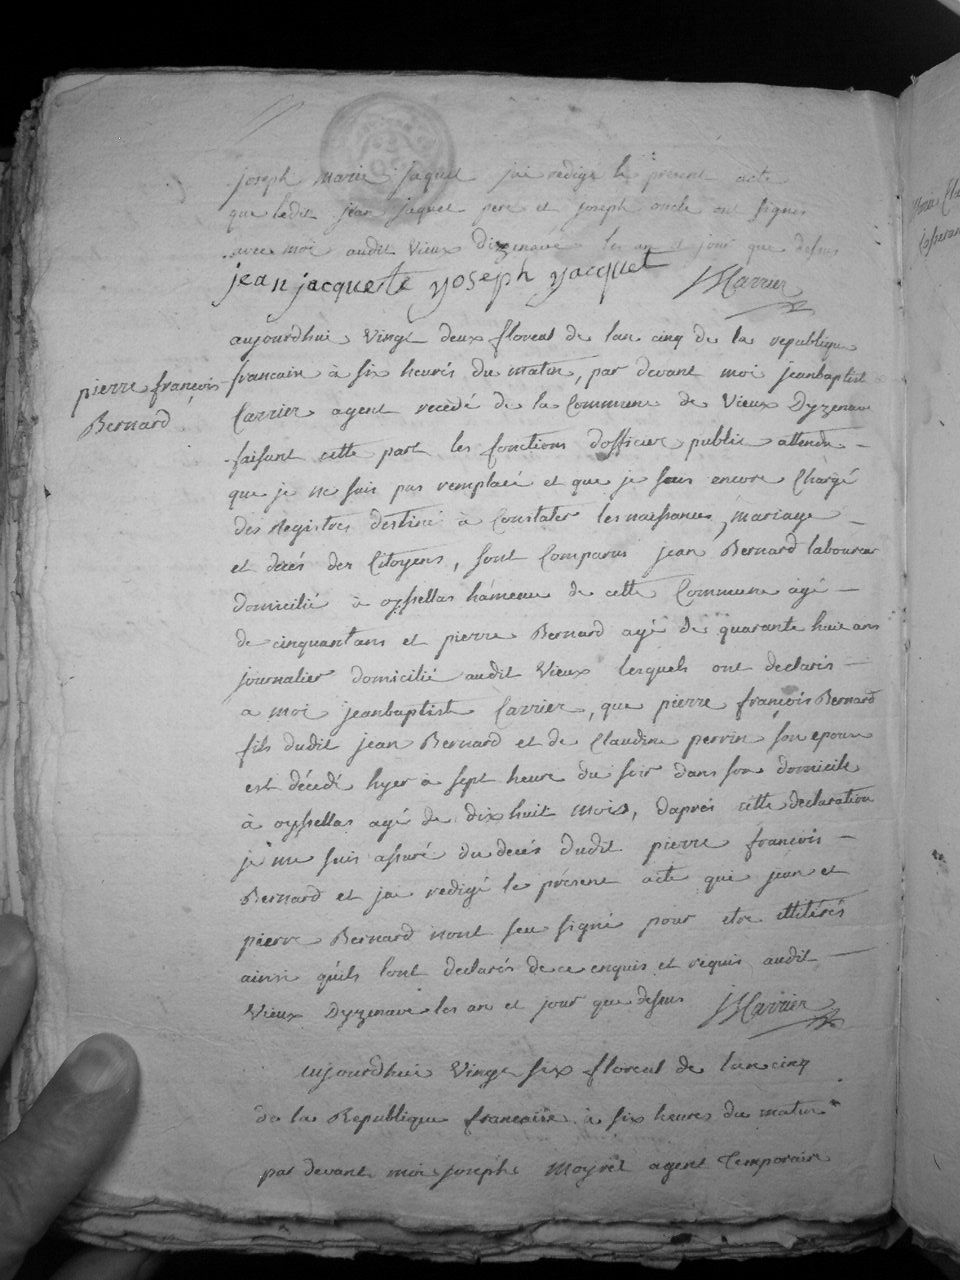 joseph marie jaquet jai redigé le présent acte
que ledit jean jaquet pere et joseph oncle ont signés
avec moi audit Vieux Dizenave les an et jour que desus
jean jacquette yoseph yacquet JBCarrier
aujourdhui Vingt deux floreal de lan cinq de la republique
francaise à six heures du matin, par devant moi jeanbaptist
pierre francois
Bernard
Carrier agent recédé de la Commune de Vieux Dyzenave
faisant cette part les fonctions dofficier public attendu
que je ne suis pas remplacé et que je suis encore Chargé
des Registres destiné à Constater les naissances, mariage
et décés des Citoyens, sont Comparus jean Bernard laboureur
domicilié à oyssellas hámeau de cette Commune agé
de cinquant ans et pierre Bernard agé de quarante huit ans
journalier domicilié audit Vieux lesquels ont declarés
a moi jeanbaptist Carrier, que pierre francois Bernard
fils dudit jean Bernard et de Claudine perrin son epouse
est décédé hyer à sept heure du soir dans son domicile
à oyssellas agé de dix huit mois, daprés cette declaration
je me suis assuré du decés dudit pierre francois
Bernard et jai redigé le présent acte que jean et
pierre Bernard nont seu signé pour etre illitérés
ainsi quils lont declarés de ce enquis et requis audit
Vieux Dyzenave les an et jour que desus JBCarrier
aujourdhui Vingt six floreal de lan cinq
de la Republique francaise à six heures du matin
par devant moi joseph Moyret agent Temporaire